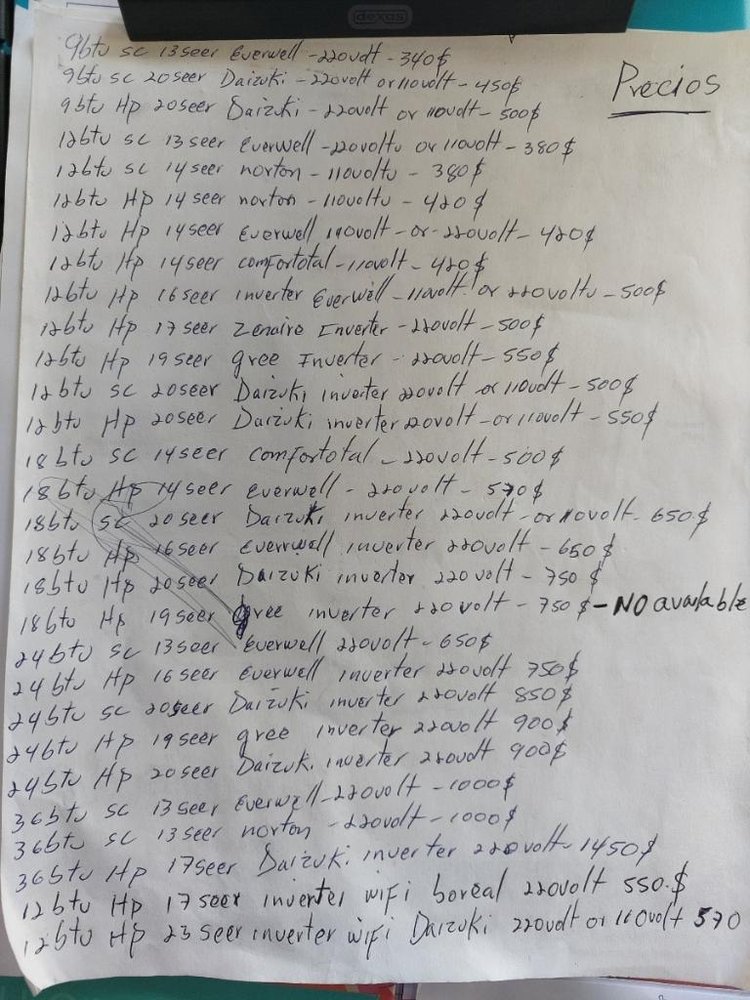 dexas
Precios
9btu sc 13seer Everwell - 220volt - 340$
9btu sc 20seer Daizuki - 220volt or 110volt - 450$
9btu Hp 20seer Daizuki - 220volt or 110volt - 500$
12btu sc 13seer Everwell - 220voltu or 110volt - 380$
12btu sc 14seer norton - 110voltu - 380$
12btu Hp 14seer norton - 110voltu - 420$
12btu Hp 14seer Everwell 110volt - or - 220volt - 420$
12btu Hp 14seer comfortotal - 110volt - 420$
12btu Hp 16seer inverter Everwell - 110volt or 220voltu - 500$
12btu Hp 17seer Zenaire Inverter - 220volt - 500$
12btu Hp 19seer gree Inverter - 220volt - 550$
12btu sc 20seer Daizuki inverter 220volt or 110volt - 500$
12btu Hp 20seer Daizuki inverter 220volt - or 110volt - 550$
18btu sc 14seer comfortotal - 220volt - 500$
18btu Hp 14seer Everwell - 220volt - 570$
18btu sc 20seer Daizuki inverter 220volt - or 110volt - 650$
18btu Hp 16seer Everwell inverter 220volt - 650$
18btu Hp 20seer Daizuki inverter 220volt - 750$
18btu Hp 19seer gree inverter 220volt - 750$ - NO available
24btu sc 13seer Everwell 220volt - 650$
24btu Hp 16seer Everwell inverter 220volt 750$
24btu sc 20seer Daizuki inverter 220volt 850$
24btu Hp 19seer gree inverter 220volt 900$
24btu Hp 20seer Daizuki inverter 220volt 900$
36btu sc 13seer Everwell - 220volt - 1000$
36btu sc 13seer norton - 220volt - 1000$
36btu Hp 17seer Daizuki inverter 220volt - 1450$
12btu Hp 17seer inverter wifi boreal 220volt 550$
12btu Hp 23seer inverter wifi Daizuki 220volt or 110volt 570